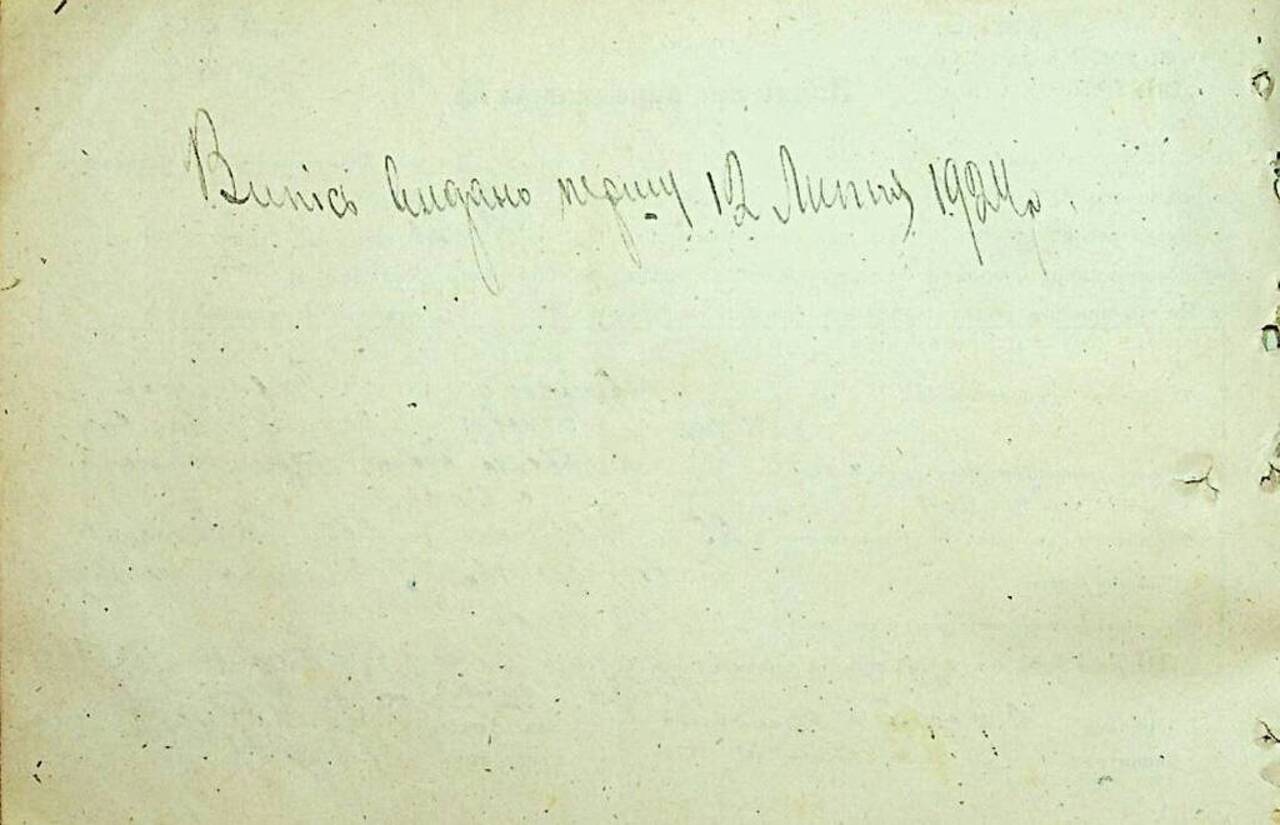 Випіс видано першу 12 Липня 1924р.